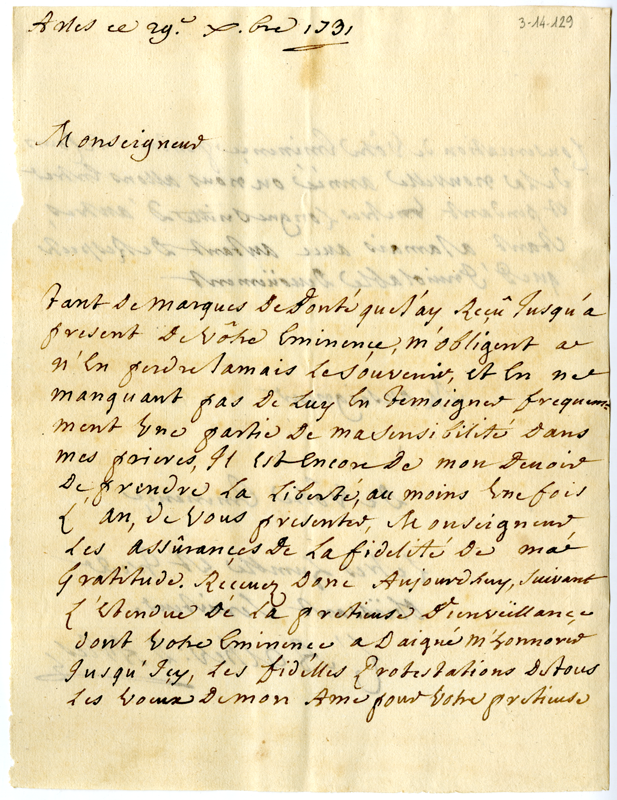 3-14-129
Arles ce 29.e x.bre 1731
Monseigneur
Tant De marques De Bonté que J'ay Reçû Jusqu'a
present De Vôtre Eminence, m'obligent a
n'En perdre Jamais Le souvenir, et En ne
manquant pas De Luy En Temoigner frequem=
ment Vne partie De ma sensibilité Dans
mes prieres, Il Est Encore De mon Devoir
De prendre La Liberté, au moins Vne fois
L'an, de Vous presenter, Monseigneur
Les assûrances De La fidelité De ma
Gratitude. Recevez Donc Aujourdhuy, suivant
L'Etendue De La pretieuse Bienveïllance
dont Votre Eminence a Daigné m'honnorer
Jusqu'Icy, Les fidélles Protestations De tous
Les Voeux De mon Ame pour Votre pretieuse